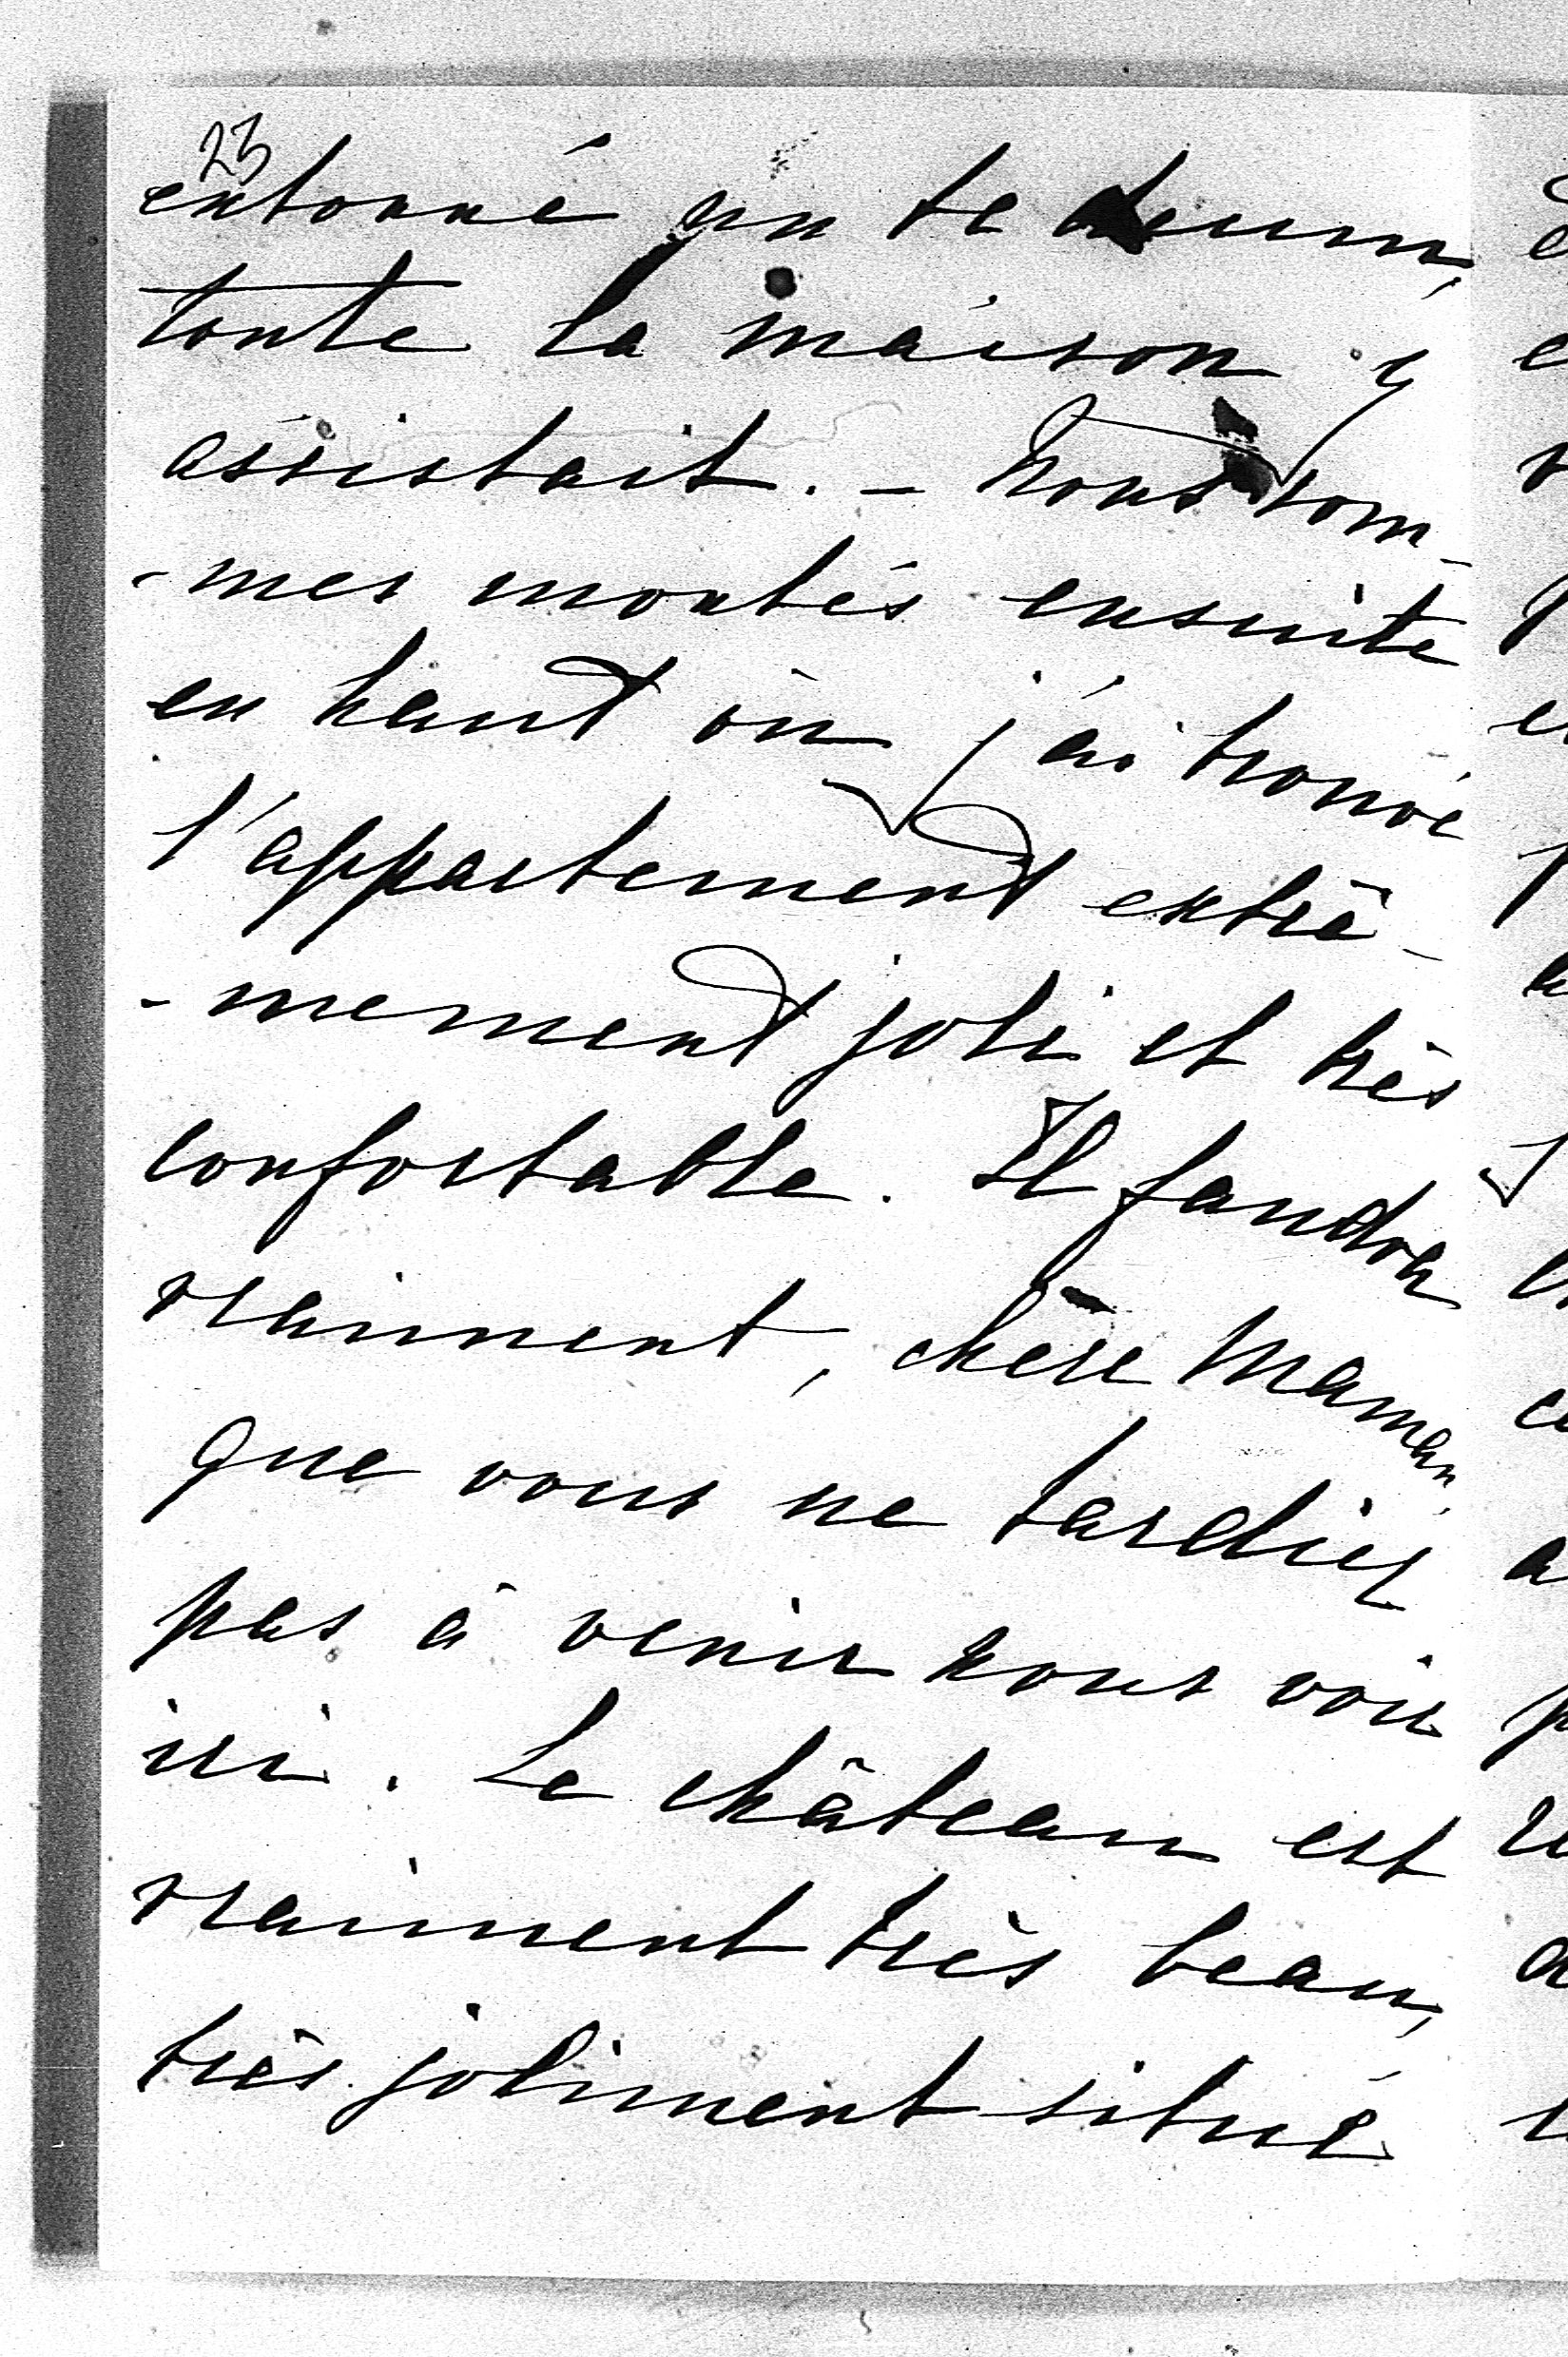 23
entonné un te deum,
toute la maison y
assistait. – Nous som-
-mes montés ensuite
en haut où j'ai trouvé
l'appartement extrê-
-mement joli et très
confortable. Il faudra
vraiment, chère Maman,
que vous ne tardiez
pas à venir nous voir
ici. Le château est
vraiment très beau,
très joliment situé